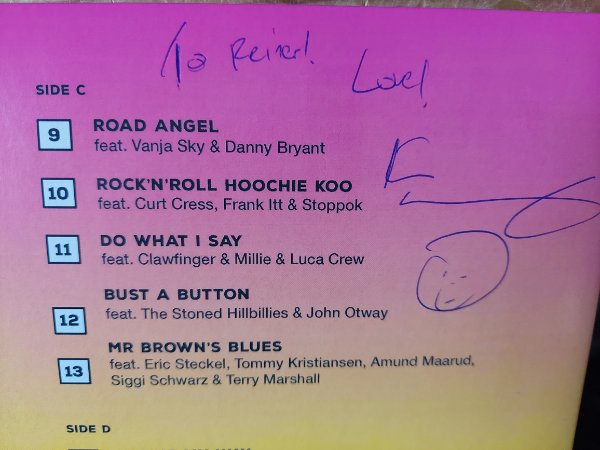 To Reiner! Love!
SIDE C
9 ROAD ANGEL
feat. Vanja Sky & Danny Bryant
10 ROCK'N'ROLL HOOCHIE KOO
feat. Curt Cress, Frank Itt & Stoppok
11 DO WHAT I SAY
feat. Clawfinger & Millie & Luca Crew
BUST A BUTTON
12 feat. The Stoned Hillbillies & John Otway
MR BROWN'S BLUES
13 feat. Eric Steckel, Tommy Kristiansen, Amund Maarud,
Siggi Schwarz & Terry Marshall
SIDE D